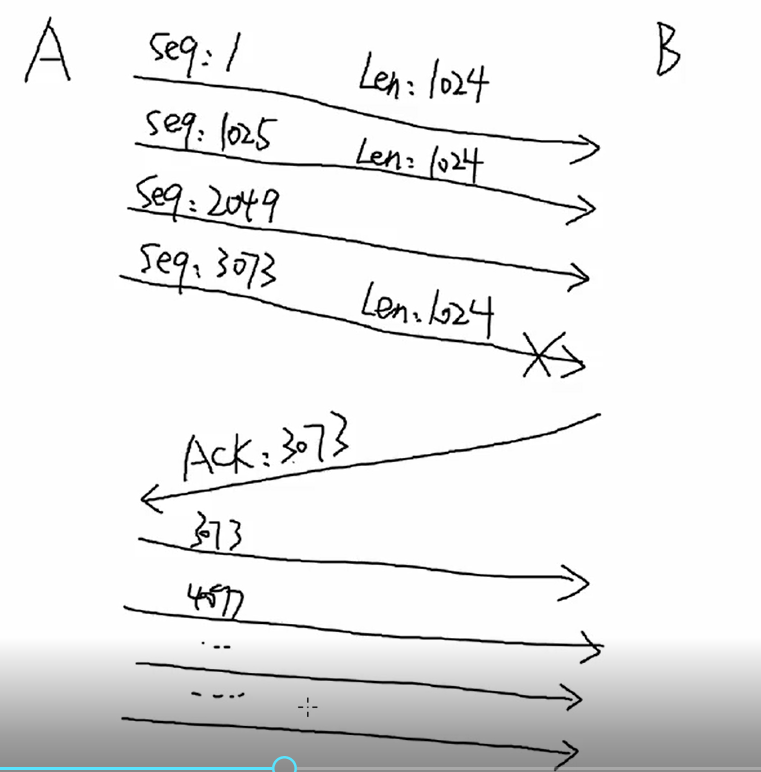 A
B
Seq: 1 Len: 1024
Seq: 1025 Len: 1024
Seq: 2049
Seq: 3073 Len: 1024
Ack: 3073
3073
4097
...
....